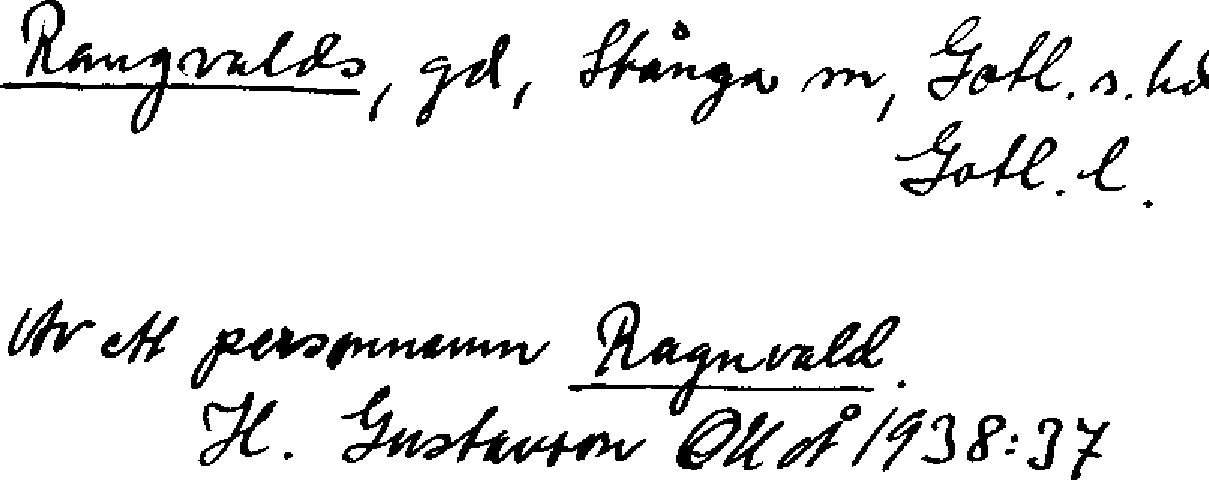 Rangvalds, gd, Stånga sn, Gotl. s. hd
Gotl. l.
Av ett personnamn Ragnvald.
H. Gustavson GK åt 1938:37